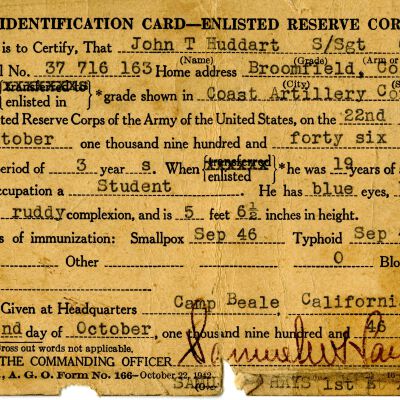 IDENTIFICATION CARD—ENLISTED RESERVE COR
is to Certify, That John T Huddart S/Sgt
(Grade) (Arm or
l No. 37 716 163 Home address Broomfield, Co
enlisted in *grade shown in Coast Artillery Co
(City) (S
ted Reserve Corps of the Army of the United States, on the 22nd
tober one thousand nine hundred and forty six
period of 3 year s. When transferred
enlisted *he was 19 years of a
occupation a Student He has blue eyes,
ruddy complexion, and is 5 feet 6½ inches in height.
s of immunization: Smallpox Sep 46 Typhoid Sep 4
Other 0 Blo
Given at Headquarters Camp Beale, California
nd day of October, one thousand nine hundred and 46
Cross out words not applicable.
THE COMMANDING OFFICER
., A. G. O. Form No. 166—October 22, 1942 HAYS 1st Lt